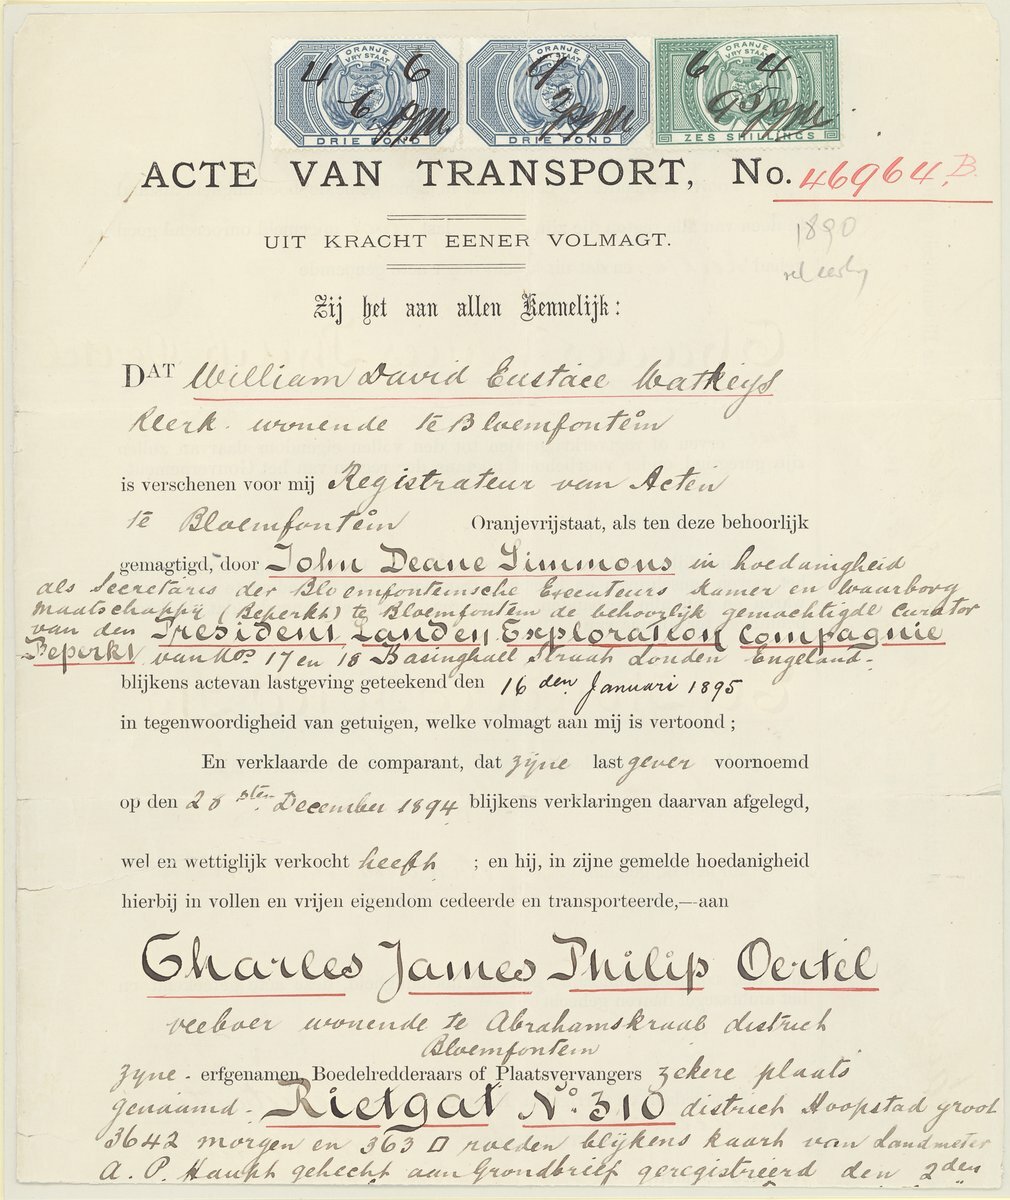 ORANJE VRY STAAT ORANJE VRY STAAT ORANJE VRY STAAT
4 6 9 6 4
DRIE POND DRIE POND ZES SHILLINGS
ACTE VAN TRANSPORT, No. 46964 B.
1890
UIT KRACHT EENER VOLMAGT.
Zij het aan allen Kennelijk:
DAT William David Eustace Watkeys
Klerk. wonende te Bloemfontein
is verschenen voor mij Registrateur van Acten
te Bloemfontein Oranjevrijstaat, als ten deze behoorlijk
gemagtigd, door John Deane Simmons in hoedanigheid
als Secretaris der Bloemfonteinsche Executeurs Kamer en Waarborg
Maatschappij (Beperkt) te Bloemfontein de behoorlijk gemachtigde Curator
van den President Landen Exploration Compagnie
Beperkt van Nos. 17 en 18 Basinghall Straat Londen Engeland.
blijkens acte van lastgeving geteekend den 16 den Januari 1895
in tegenwoordigheid van getuigen, welke volmagt aan mij is vertoond;
En verklaarde de comparant, dat zyne lastgever voornoemd
op den 28 sten December 1894 blijkens verklaringen daarvan afgelegd,
wel en wettiglijk verkocht heeft ; en hij, in zijne gemelde hoedanigheid
hierbij in vollen en vrijen eigendom cedeerde en transporteerde,—aan
Charles James Philip Oertel
veeboer wonende te Abrahamskraal district
Bloemfontein
zyne - erfgenamen, Boedelredderaars of Plaatsvervangers zekere plaats
genaamd. Rietgat No. 310 district Hoopstad groot
3642 morgen en 363 □ roeden blijkens kaart van Landmeter
A. P. Haupt gehecht aan Grondbrief geregistreerd den 2den